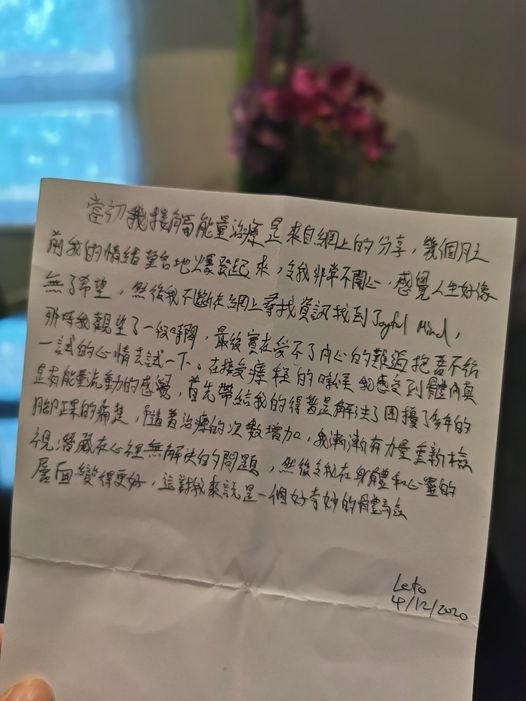 當初我接觸能量治療是來自網上的分享，幾個月之
前我的情緒整合地爆發起來，令我非常不開心，感覺人生好像
無了希望，然後我不斷在網上尋找資訊找到 Joyful Mind，
那時我觀望了一段時間，最後實在受不了內心的難過抱著不妨
一試的心情去試一下。在接受療程的時候我感受到體內真
是有能量流動的感覺，首先帶給我的得著是解決了困擾了多年的
腳踝的痛楚，隨著治療的次數增加，我漸漸有力量重新檢
視潛藏在心裡無解決的問題，然後令我在身體和心靈的
層面變得更好，這對我來說是一個好奇妙的體驗
Leto
4/12/2020